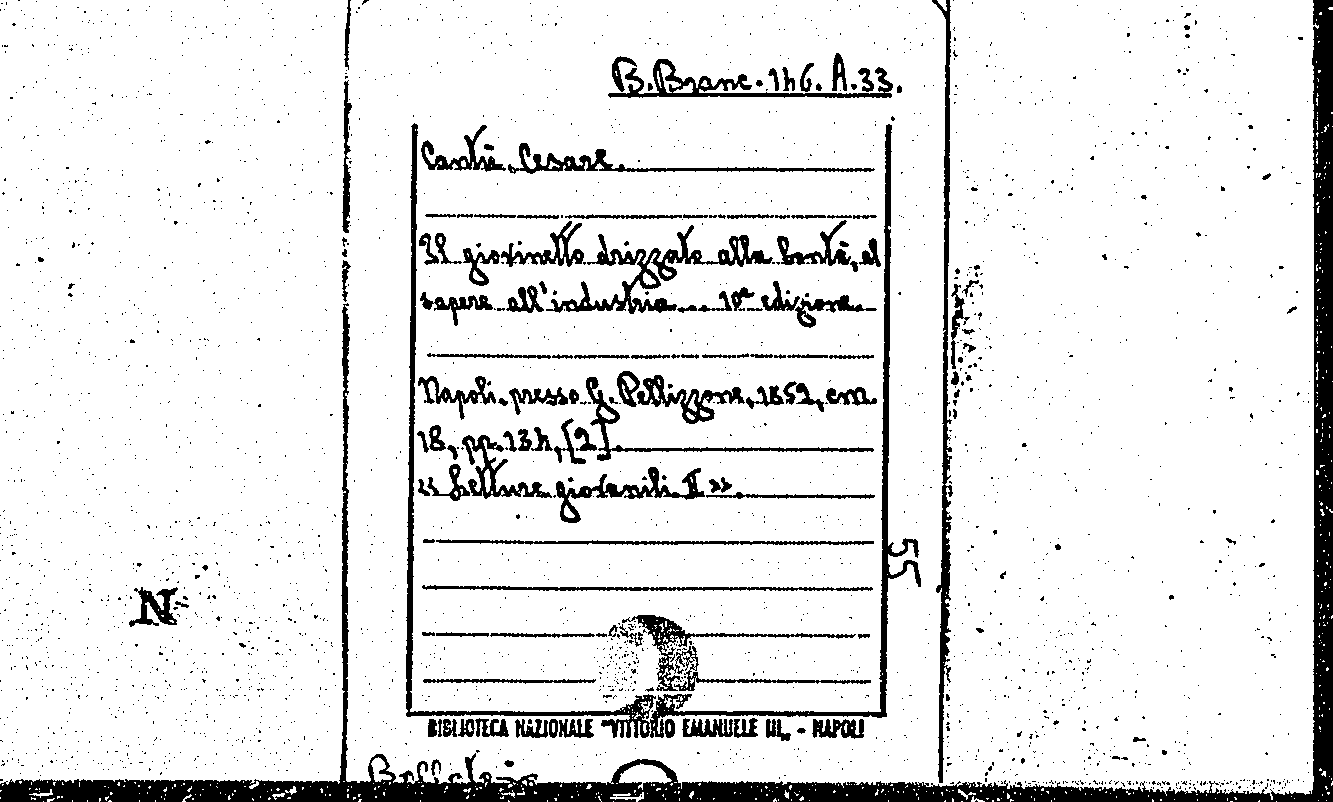 B. Branc. 146. A. 33.
Cantù, Cesare.
Il giovinetto drizzato alla bontà, al
sapere all'industria... 10ª edizione.
Napoli, presso G. Pellizzone, 1852, cm.
18, pp. 134, [2].
«Letture giovanili II».
55
N
BIBLIOTECA NAZIONALE "VITTORIO EMANUELE III„ - NAPOLI